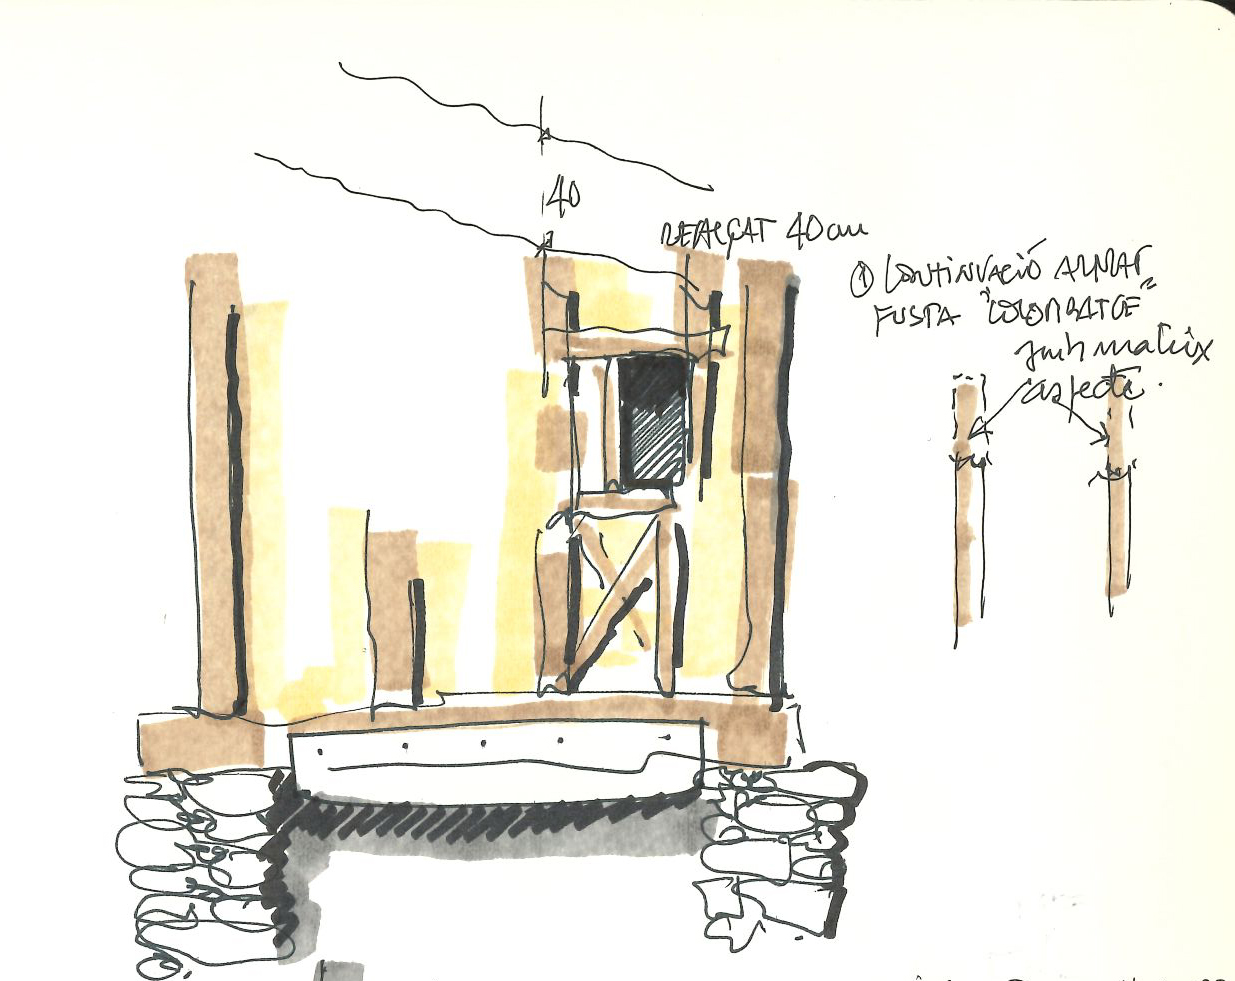 40
REALÇAT 40cm
① CONTINUACIÓ ARMAT
FUSTA "COLOMBATGE"
amb mateix
aspecte.